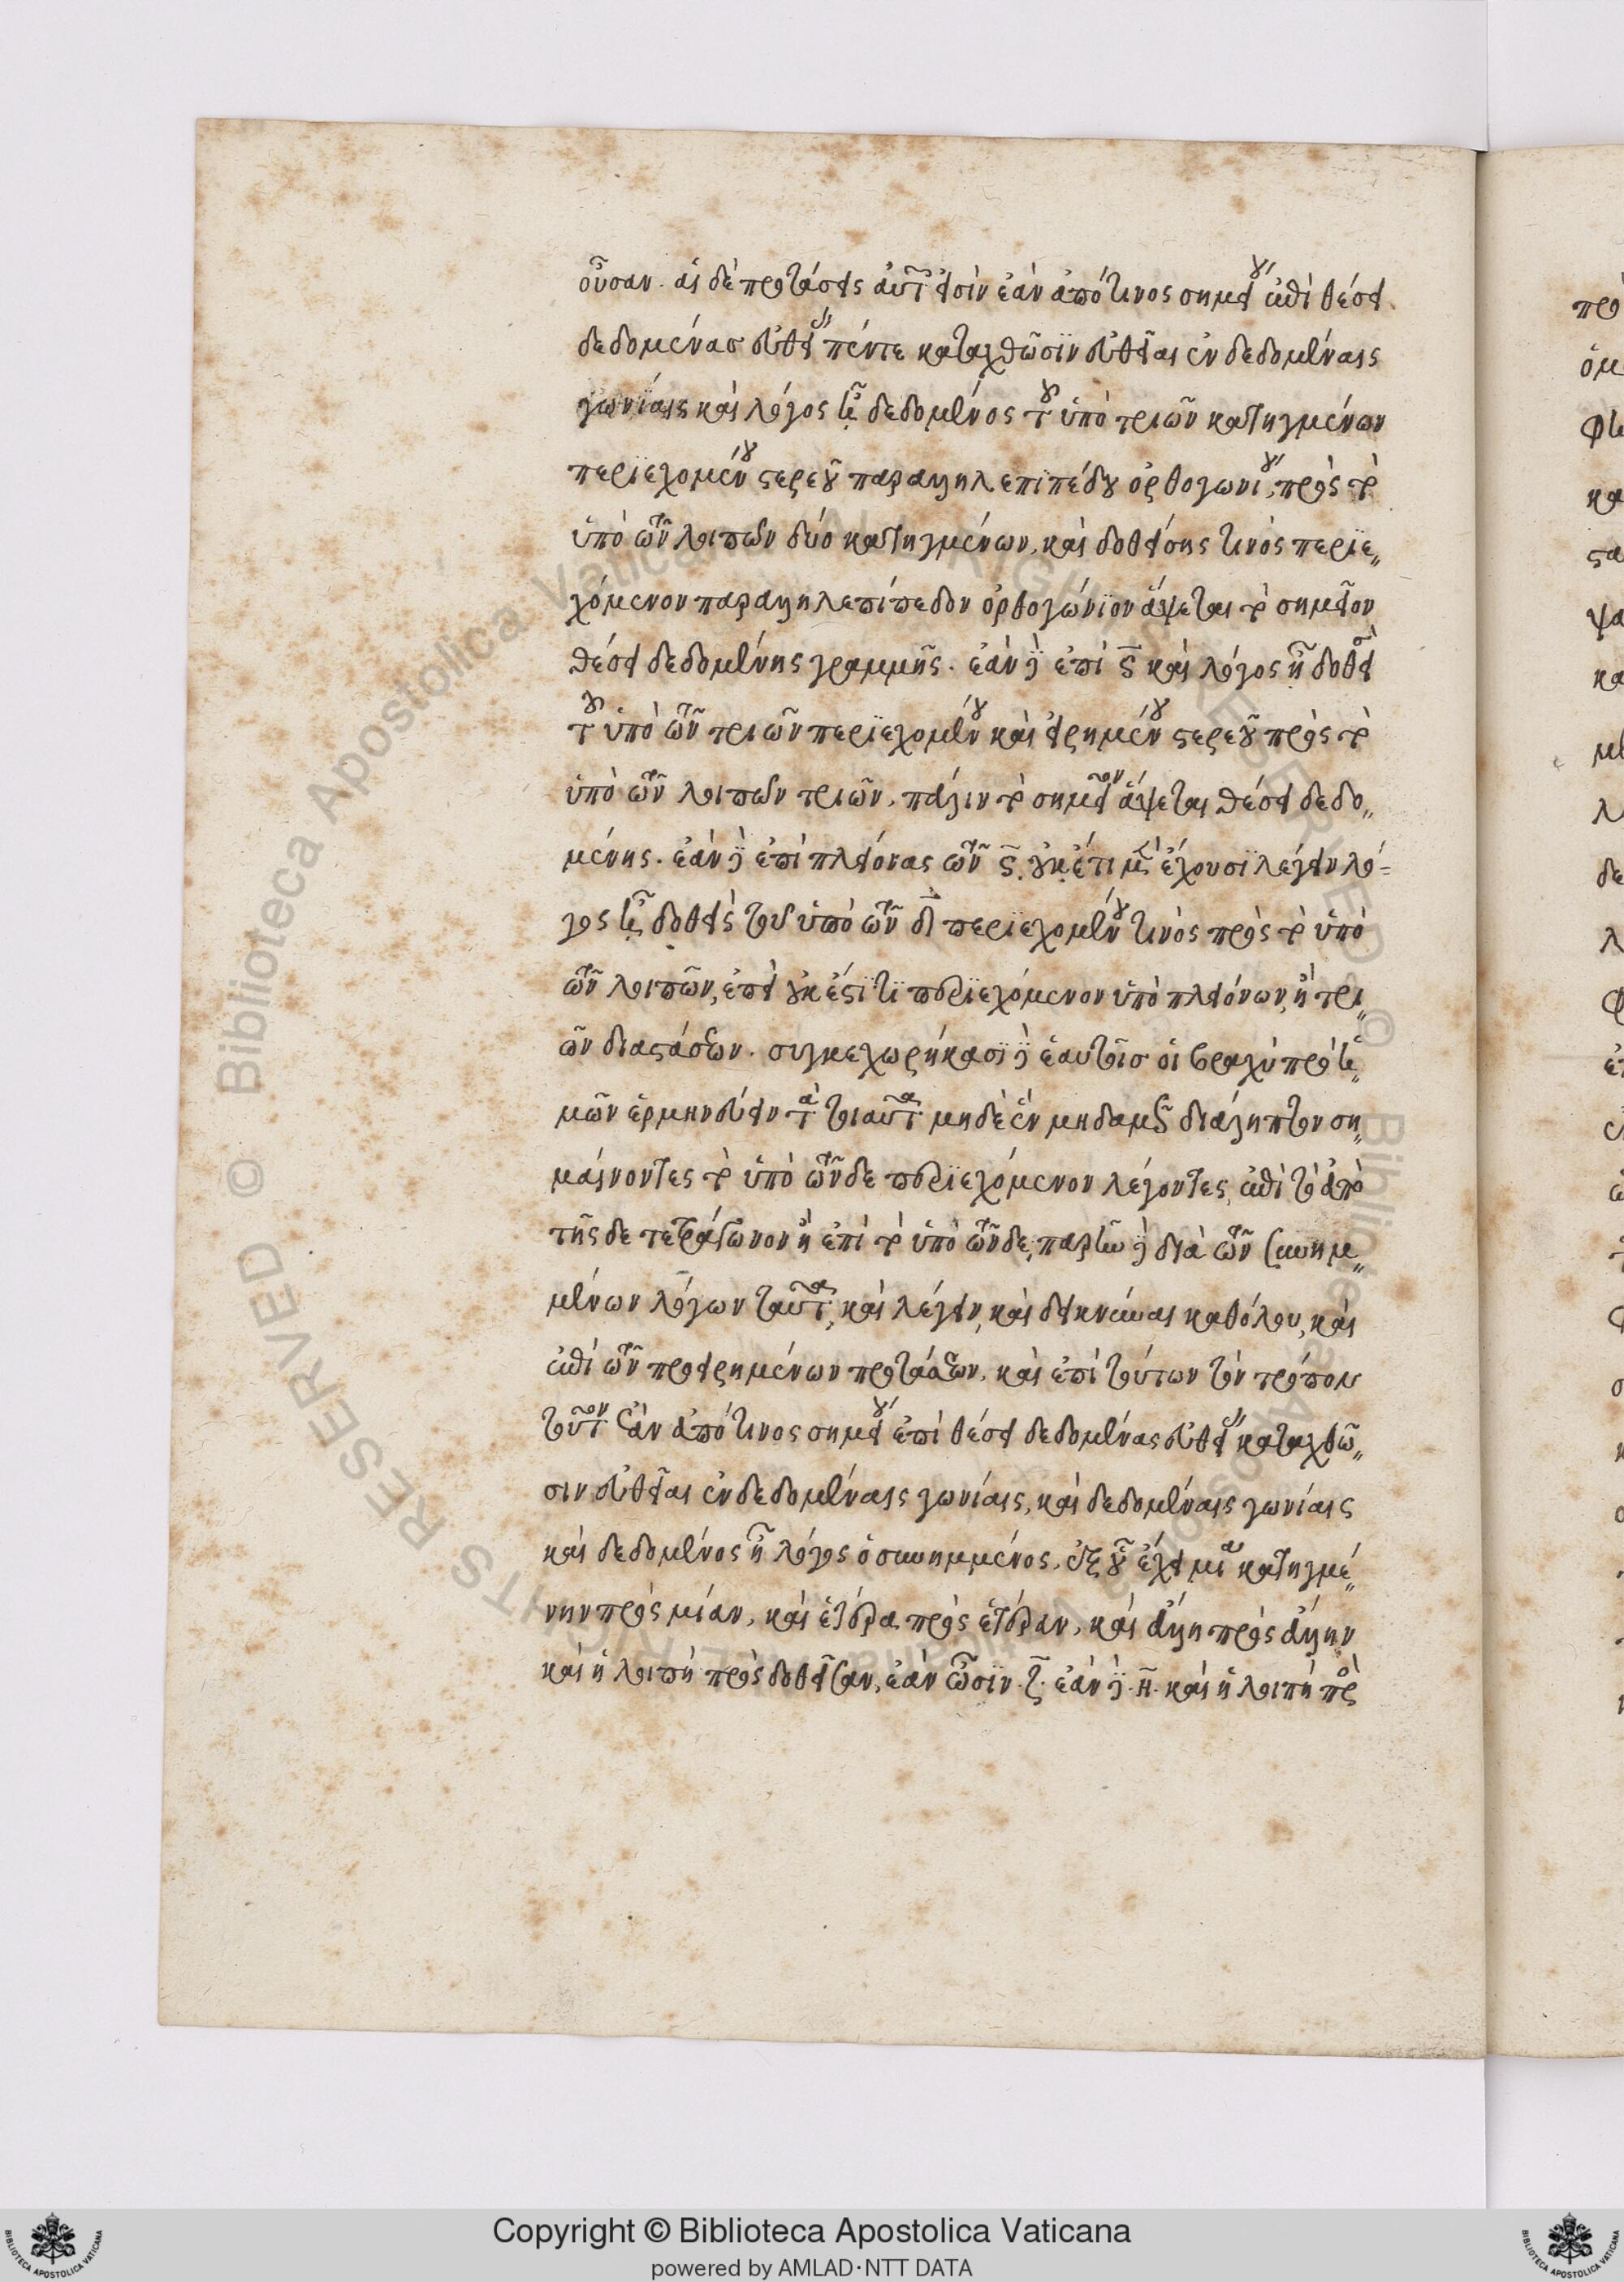 οὖσαν. αἱ δὲ προτάσεις αὗται εἰσὶν ἐὰν ἀπό τινος σημείου ἐπὶ θέσει
δεδομένας εὐθείας πέντε καταχθῶσιν εὐθεῖαι ἐν δεδομέναις
γωνίαις καὶ λόγος ᾖ δεδομένος τοῦ ὑπὸ τριῶν κατηγμένων
περιεχομένου στερεοῦ παραλληλεπιπέδου ὀρθογωνίου, πρὸς τὸ
ὑπὸ τῶν λοιπῶν δύο κατηγμένων, καὶ δοθείσης τινὸς περιε„
χόμενον παραλληλεπίπεδον ὀρθογώνιον ἅψεται τὸ σημεῖον
θέσει δεδομένης γραμμῆς. ἐάν τε ἐπὶ ϛ καὶ λόγος ᾖ δοθεὶς
τοῦ ὑπὸ τῶν τριῶν περιεχομένου καὶ εἰρημένου στερεοῦ πρὸς τὸ
ὑπὸ τῶν λοιπῶν τριῶν, πάλιν τὸ σημεῖον ἅψεται θέσει δεδο„
μένης. ἐάν τε ἐπὶ πλείονας τῶν ϛ, οὐκέτι μὲν ἔχουσι λέγειν λό=
γος ᾖ δοθεὶς τοῦ ὑπὸ τῶν δ περιεχομένου τινὸς πρὸς τὸ ὑπὸ
τῶν λοιπῶν, ἐπεὶ οὐκ ἔστι τι περιεχόμενον ὑπὸ πλειόνων, ἢ τρι„
ῶν διαστάσεων. συγκεχωρήκασι δὲ ἑαυτοῖς οἱ βραχὺ πρὸ ἡ„
μῶν ἑρμηνεύειν τὰ τοιαῦτα μηδὲ ἓν μηδαμῶς διάληπτον ση„
μαίνοντες τὸ ὑπὸ τῶνδε περιεχόμενον λέγοντες, ἐπὶ τὸ ἀπὸ
τῆσδε τετράγωνον ἢ ἐπὶ τὸ ὑπὸ τῶνδε, παρῆν δὲ διὰ τῶν συνημ„
μένων λόγων ταῦτα, καὶ λέγειν, καὶ δεικνύναι καθόλου, καὶ
ἐπὶ τῶν προειρημένων προτάσεων, καὶ ἐπὶ τούτων τὸν τρόπον
τοῦτον ἐὰν ἀπό τινος σημείου ἐπὶ θέσει δεδομένας εὐθείας καταχθῶ„
σιν εὐθεῖαι ἐν δεδομέναις γωνίαις, καὶ δεδομέναις γωνίαις
καὶ δεδομένος ᾖ λόγος ὁ συνημμένος, ἐξ οὗ ἔχει μία κατηγμέ„
νην πρὸς μίαν, καὶ ἑτέρα πρὸς ἑτέραν, καὶ ἄλλη πρὸς ἄλλην
καὶ ἡ λοιπὴ πρὸς δοθεῖσαν, ἐὰν ὦσιν ζ. ἐὰν δὲ η. καὶ ἡ λοιπὴ πρὸς
Copyright © Biblioteca Apostolica Vaticana
powered by AMLAD·NTT DATA